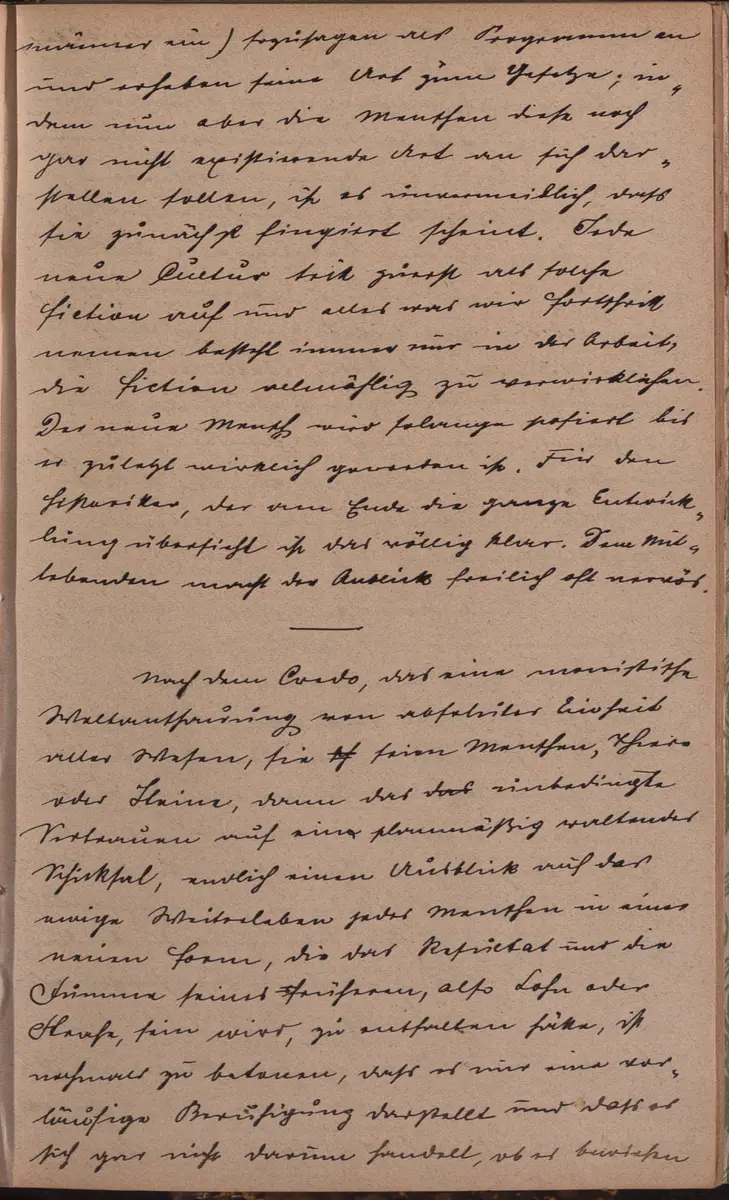 männer ein) sozusagen als Programm an
und erheben seine Art zum Gesetze; in„
dem nun aber die Menschen diese noch
gar nicht existierende Art an sich dar„
stellen sollen, ist es unvermeidlich, dass
sie zunächst fingiert scheint. Jede
neue Cultur tritt zuerst als solche
Fiction auf und alles was wir Fortschritt
nennen besteht immer nur in der Arbeit,
die Fiction allmählig zu verwirklichen.
Der neue Mensch wird solange posiert bis
er zuletzt wirklich geworden ist. Für den
Historiker, der am Ende die ganze Entwick„
lung übersieht ist das völlig klar. Dem Mit„
lebenden macht der Anblick freilich oft nervös.
Nach dem Credo, das eine monistische
Weltanschauung von absoluter Einheit
aller Wesen, sie seien Menschen, Thiere
oder Steine, dann das das unbedingte
Vertrauen auf ein planmäßig waltendes
Schicksal, endlich einen Ausblick auf das
ewige Weiterleben jedes Menschen in einer
neuen Form, die das Resultat und die
Summe seines früheren, also Lohn oder
Strafe, sein wird, zu enthalten hätte, ist
nochmals zu betonen, dass es nur eine vor„
läufige Beruhigung darstellt und dass es
sich gar nicht darum handelt, ob es bewiesen